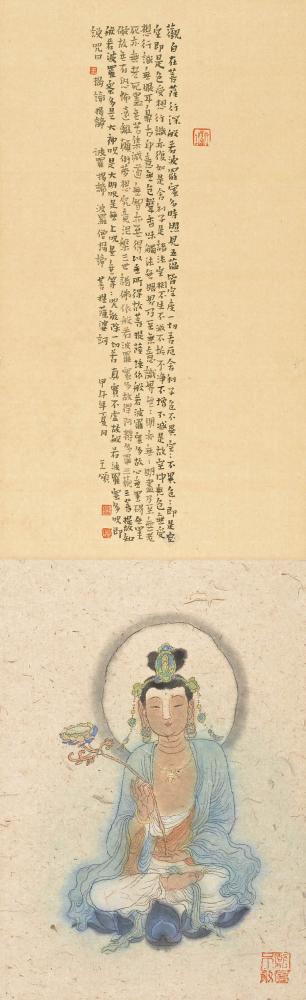 觀自在菩薩行深般若波羅蜜多時照見五蘊皆空度一切苦厄舍利子色不異空:不異色:即是空
空即是色受想行識亦復如是舍利子是諸法空相不生不滅不垢不淨不增不減是故空中無色無受
想行識無眼耳鼻舌身意無色聲香味觸法無眼界乃至無意識界無:明亦無:明盡乃至無老
死亦無老死盡無苦集滅道無智亦無得以無所得故菩提薩埵依般若波羅蜜多故心無罣礙無罣
礙故無有恐怖遠離顛倒夢想究竟涅槃三世諸佛依般若波羅蜜多故得阿耨多羅三藐三菩提故知
般若波羅蜜多是大神咒是大明咒是無上咒是無等:咒能除一切苦真實不虛故說般若波羅蜜多咒即
說咒曰 揭諦揭諦 波羅揭諦 波羅僧揭諦 菩提薩婆訶 甲午年夏月 王頌